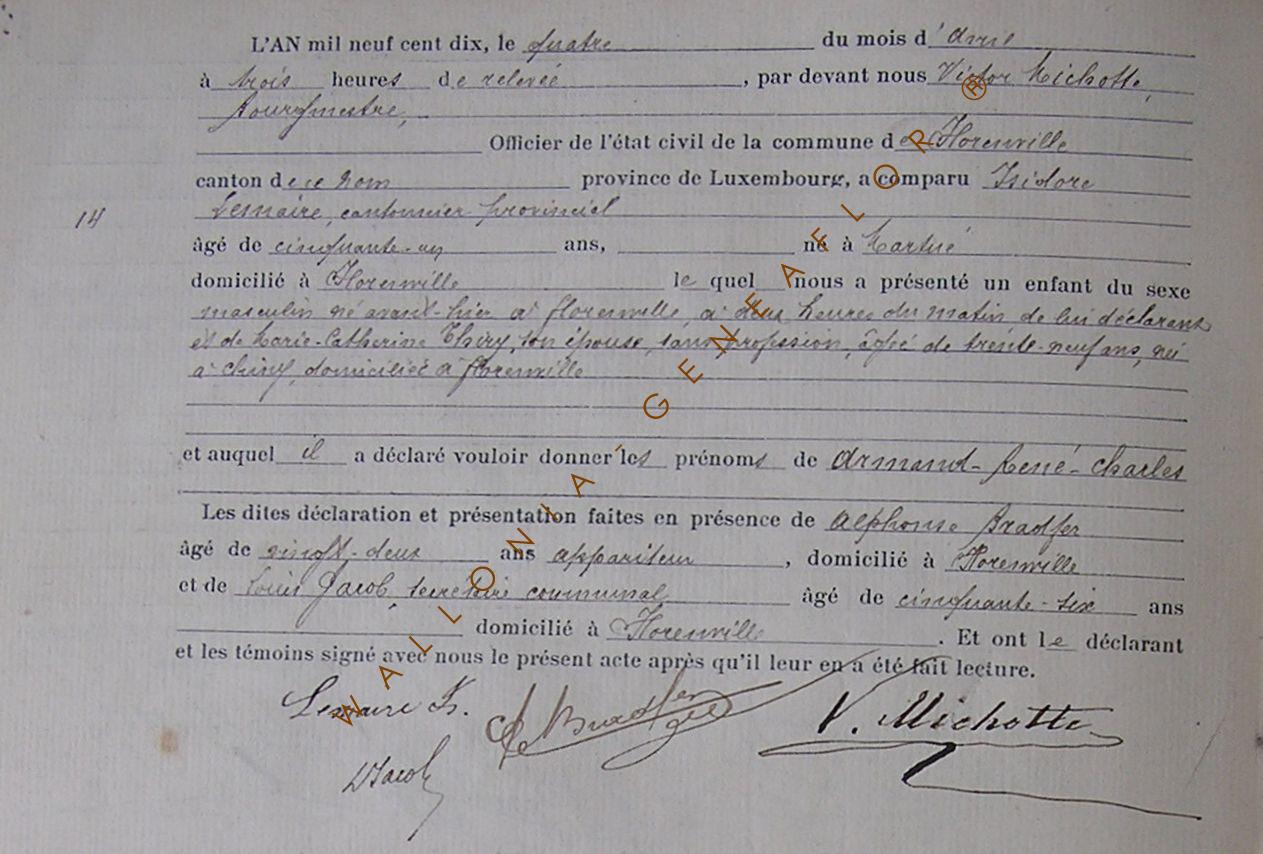 L'AN mil neuf cent dix, le quatre du mois d'avril
à trois heures de relevée, par devant nous Victor Michotte,
bourgmestre,
Officier de l'état civil de la commune de Florenville
canton de ce nom province de Luxembourg, a comparu Isidore
Lemaire, cantonnier provincial
14
âgé de cinquante-un ans, né à Martué
domicilié à Florenville le quel nous a présenté un enfant du sexe
masculin né avant-hier à Florenville, à deux heures du matin de lui déclarant
et de Marie-Catherine Thiry, son épouse, sans profession, âgée de trente-neuf ans, née
à Chiny, domiciliée à Florenville
et auquel il a déclaré vouloir donner les prénoms de Armand-René-Charles
Les dites déclaration et présentation faites en présence de Alphonse Bradfer
âgé de vingt-deux ans appariteur, domicilié à Florenville
et de Louis Jacob, secrétaire communal âgé de cinquante-six ans
domicilié à Florenville. Et ont le déclarant
et les témoins signé avec nous le présent acte après qu'il leur en a été fait lecture.
Lemaire A. Bradfer V. Michotte
Jacob
WALLONIA-GENEAFLOR®